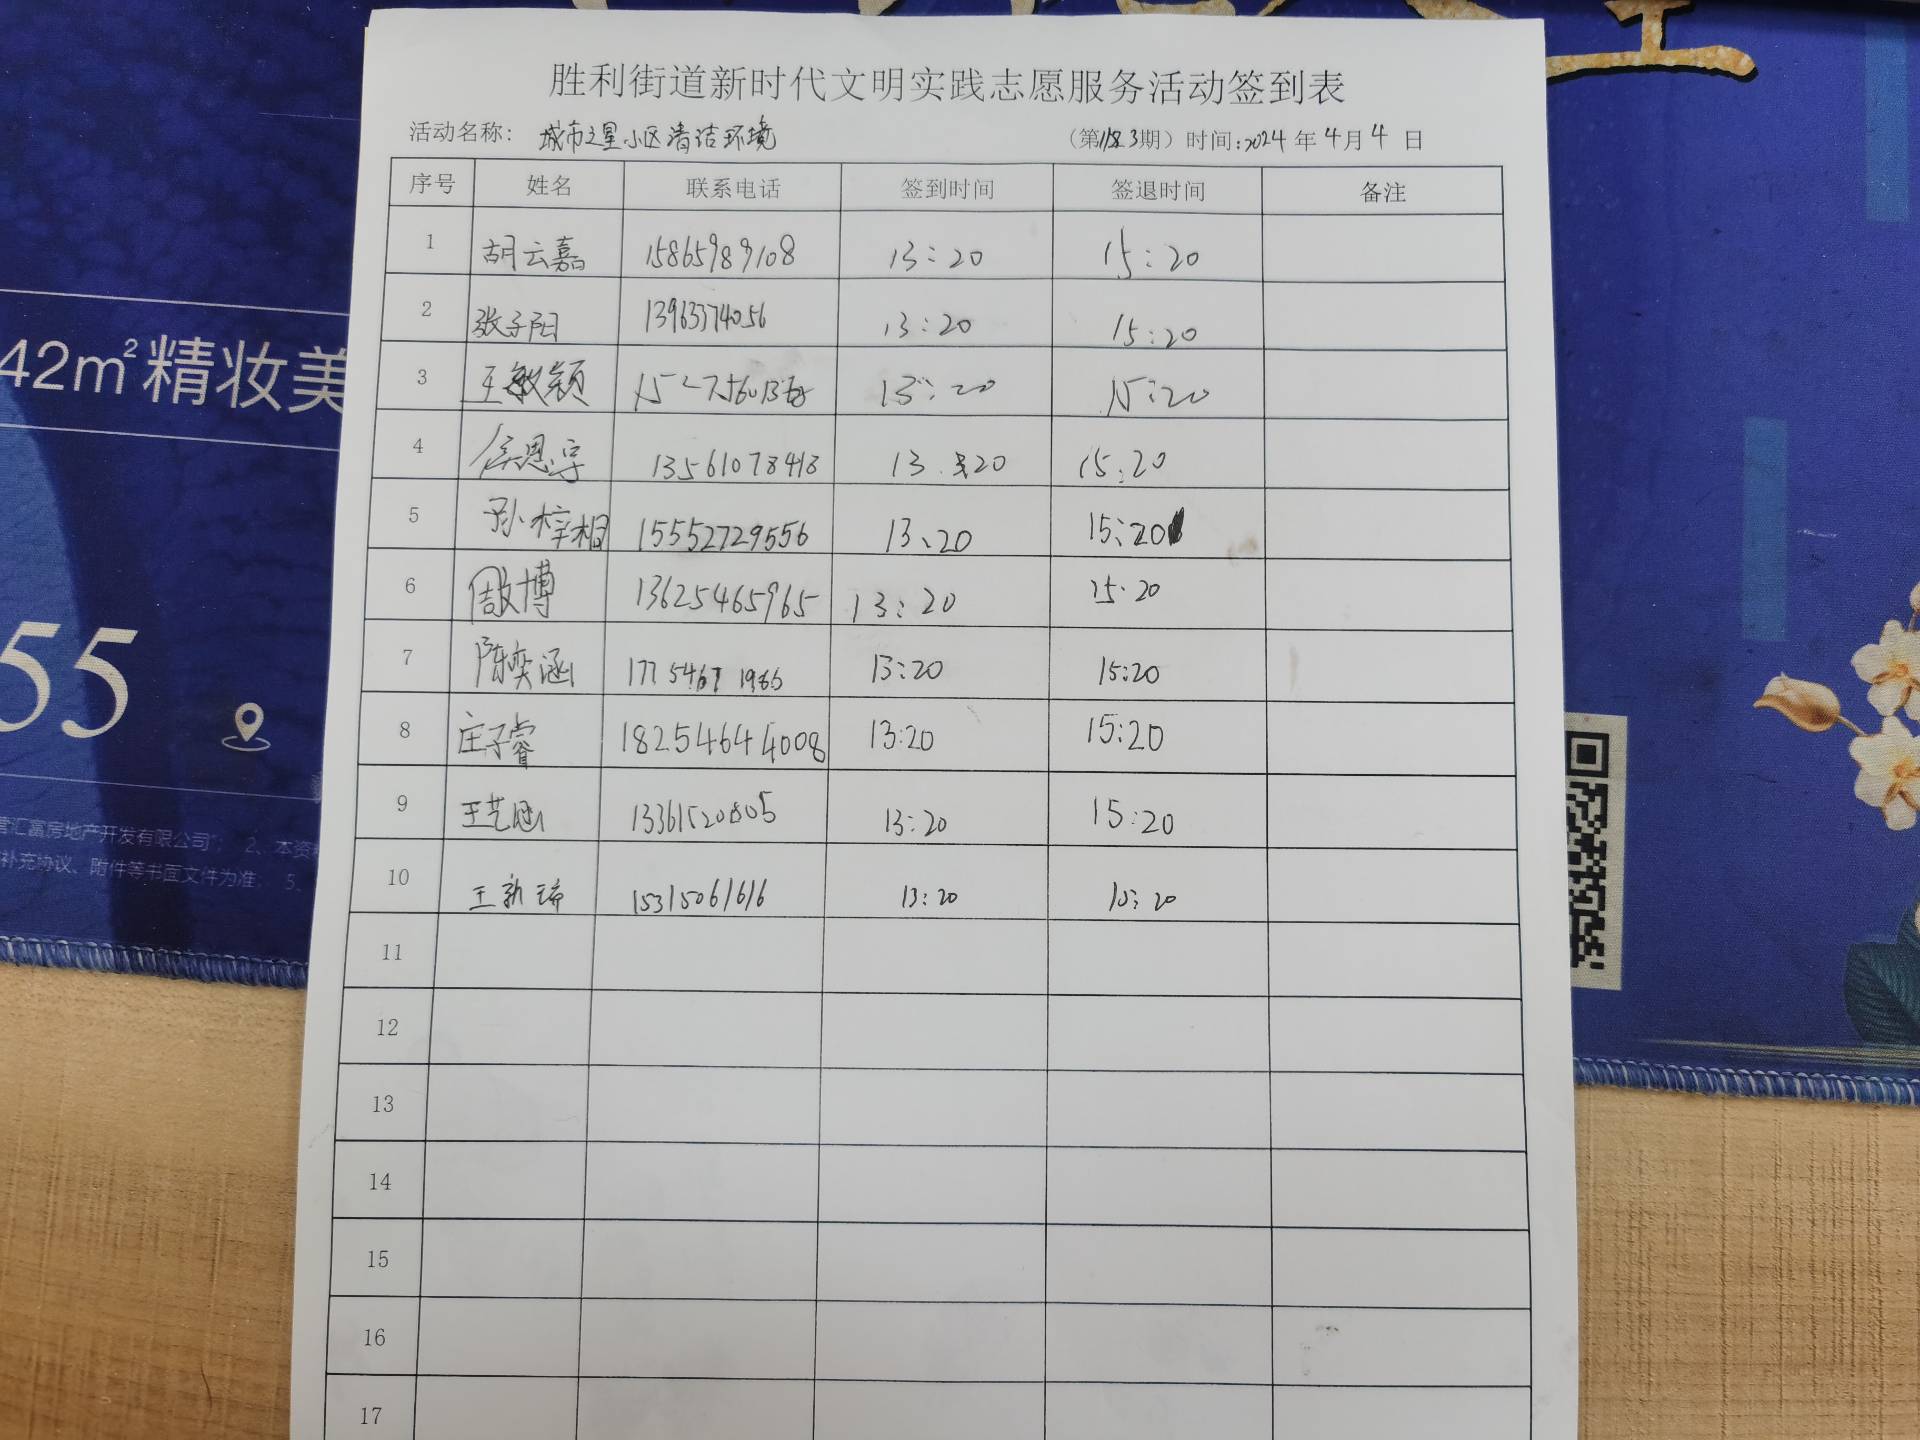 胜利街道新时代文明实践志愿服务活动签到表
活动名称： 城市之星小区清洁环境 （第1183期）时间:2024年4月4日
序号 姓名 联系电话 签到时间 签退时间 备注
1 胡云嘉 15865989108 13:20 15:20
2 张子阳 13963374056 13:20 15:20
3 王敏颖 13:20 15:20
4 侯思宇 13561078418 13:20 15:20
5 孙梓桐 15552729556 13:20 15:20
6 周博 13625465965 13:20 15:20
7 陈奕涵 17754671966 13:20 15:20
8 庄子睿 18254644008 13:20 15:20
9 王艺涵 13361520805 13:20 15:20
10 王新瑞 15315061616 13:20 15:20
11
12
13
14
15
16
17
42m²精妆美
55
营汇富房地产开发有限公司"； 2、本资料
补充协议、附件等书面文件为准； 5、